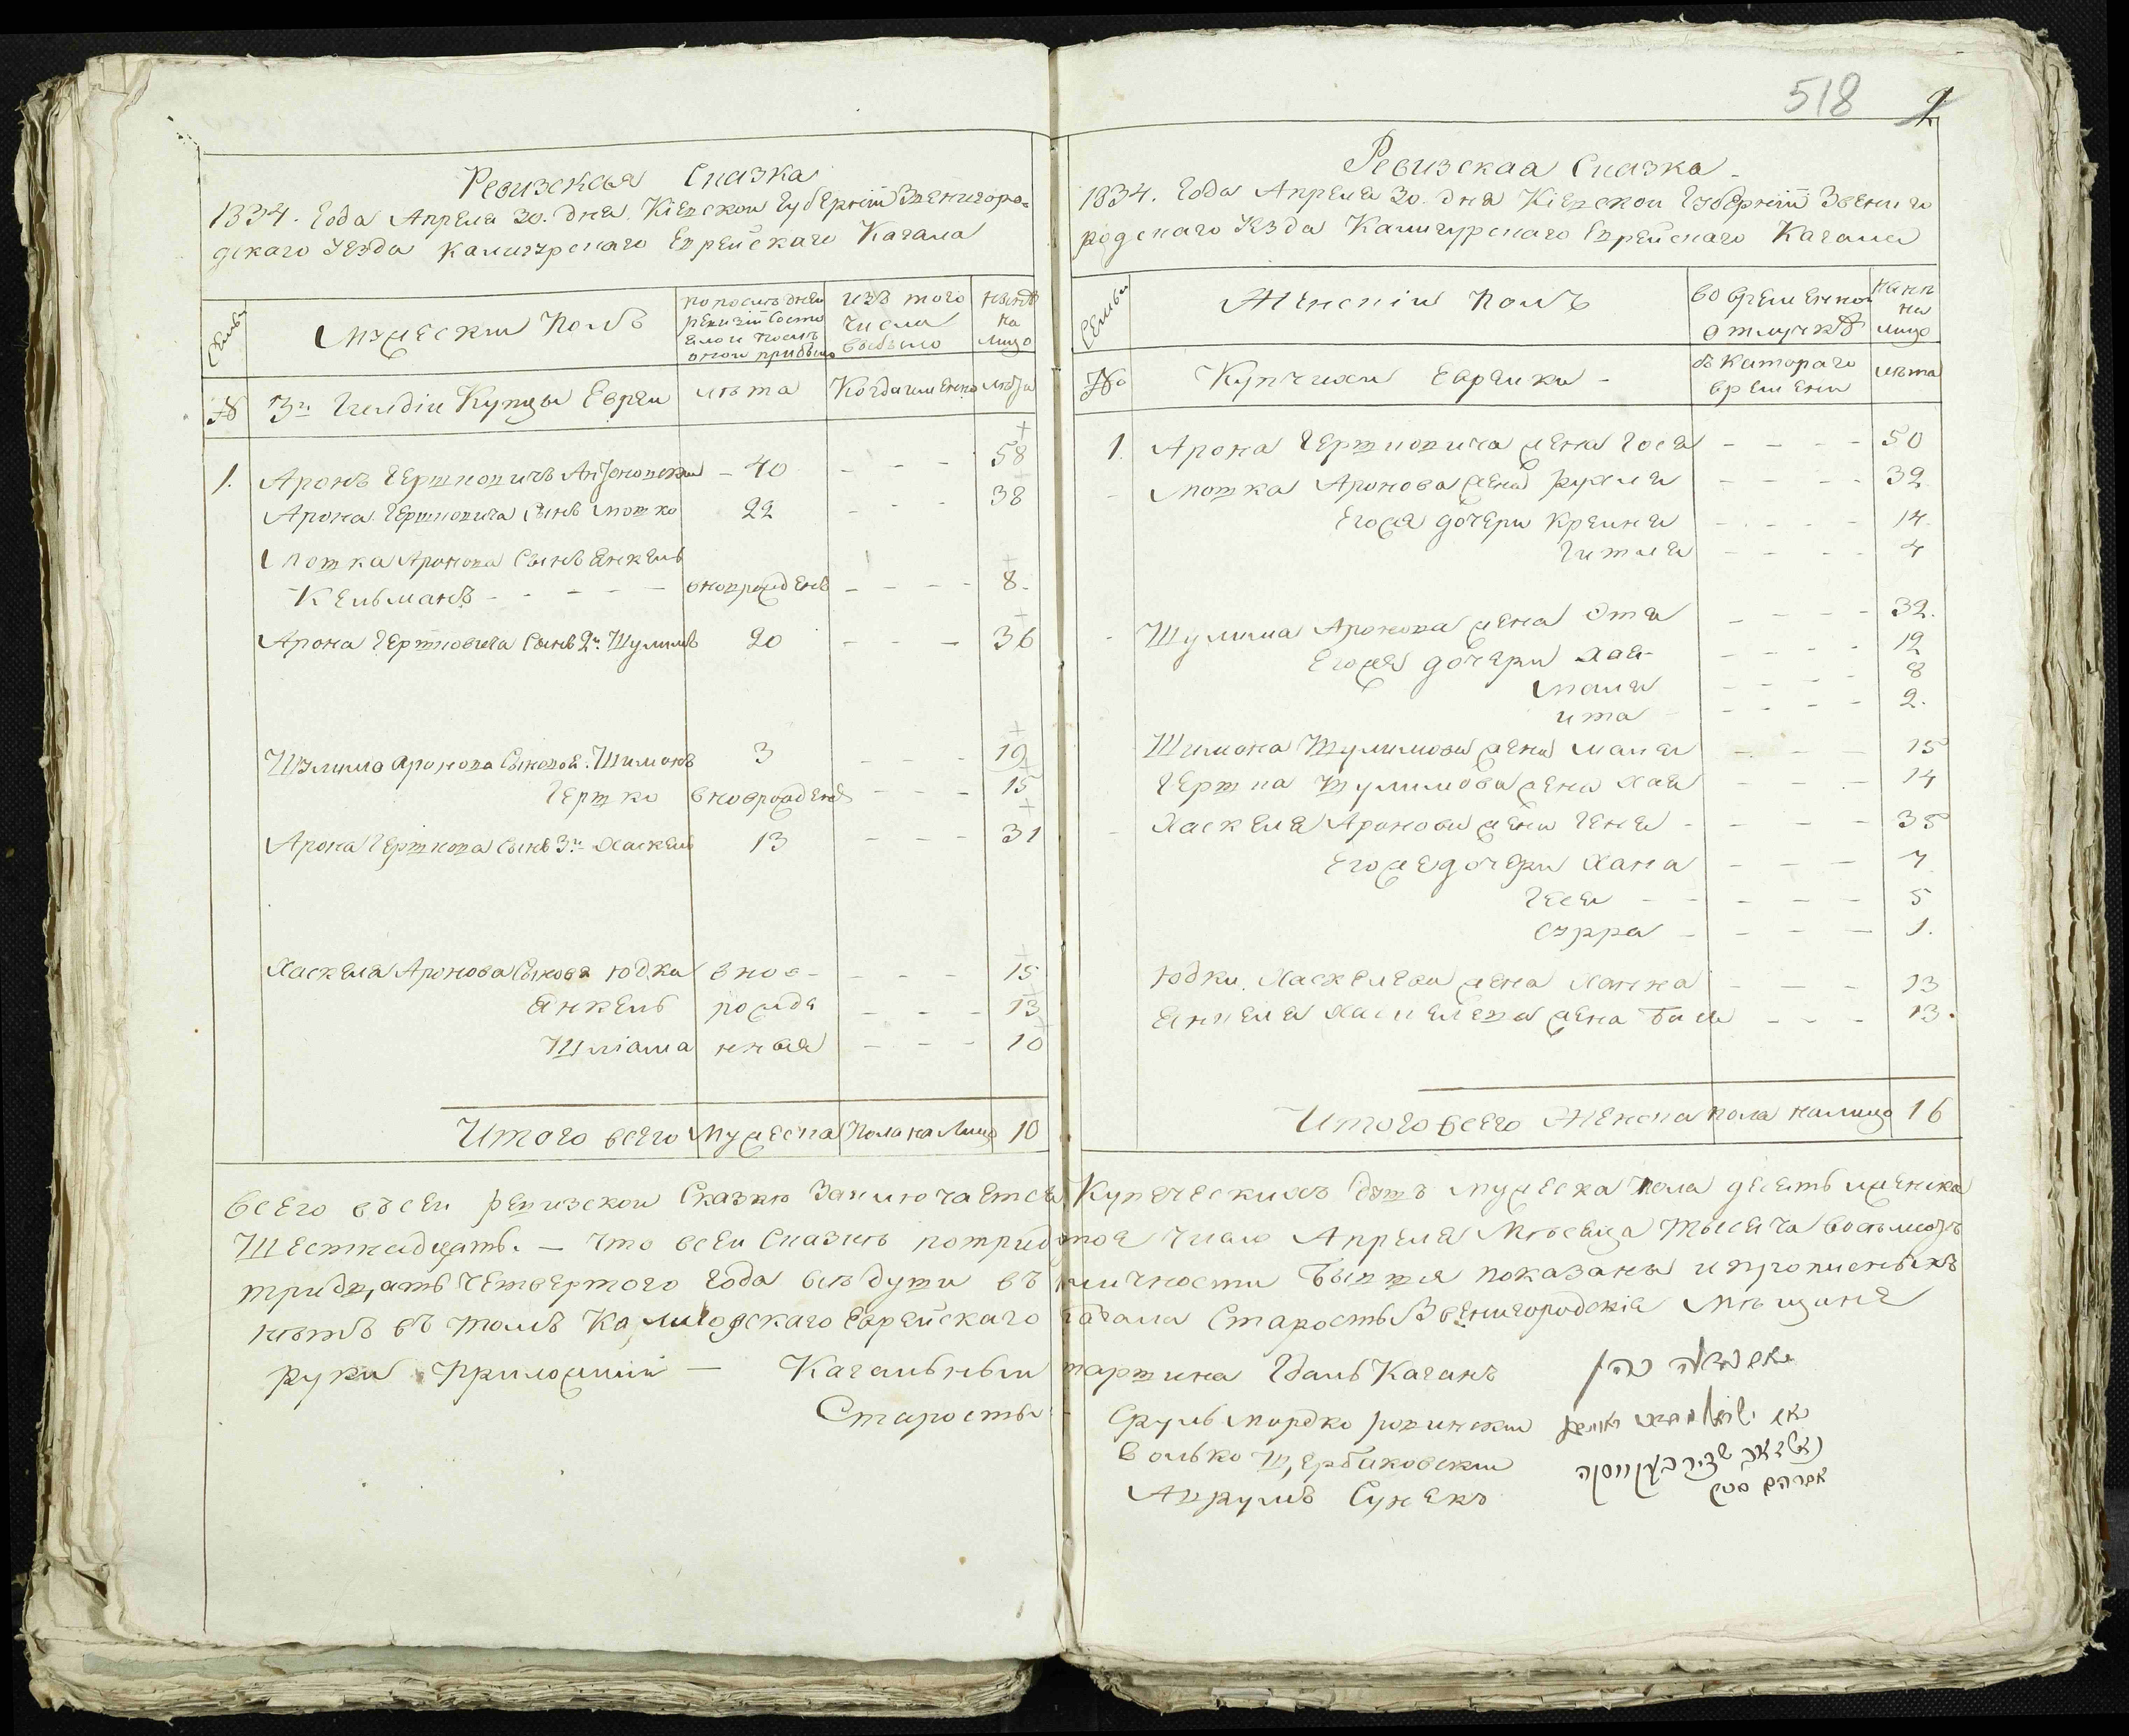 Ревизская Сказка
1834. Года Апреля 30. дня. Кіевской Губерніи Звенигоро=
дскаго Уезда Калигурскаго Еврейскаго Кагала
Семьи
Мужескій Полъ
по последней
ревизіи Состо
яло и после
оной прибыло
изъ того
числа
выбыло
ныне
на
лицо
№
3й Гилдіи Купцы Евреи
лета
Когда именно
лета
1. Аронъ Гершковичъ 40 - - - 58
Арона Гершковича Сынъ Мошко 22 - - - 38
Мошка Аронова Сынъ Янкель
Кельманъ - - - - - вноврожденъ - - - - 8.
Арона Гершковича Сынъ 2й Шулимъ 20 - - - 36
Шулима Аронова Сыновя. Шимонъ 3 - - - 19
Гершко вноврожденъ - - - 15
Арона Гершкова Сынъ 3й Хаскель 13 - - - 31
Хаскеля Аронова Сыновя Юдка внов- - - - 15
Янкель рожде - - - 13
Шліома нныя - - - 10
Итого всего Мужеска Пола на Лицо 10
518
Ревизская Сказка
1834. Года Апреля 30. дня Кіевской Губерніи Звениго
родскаго Уезда Калигурскаго Еврейскаго Кагала
Семьи
Женскій Полъ
во временной
отлучкѣ
ныне
на
лицо
№
Купчихи Еврейки -
съ катораго
времени
лета
1. Арона Гершковича жена Гося - - - - 50
Мошка Аронова жена Рухля - - - - 32
Егожа дочери Крейня - - - - 14
Гитля - - - - 4
Шулима Аронова жена Этя - - - - 32.
Егожа дочери Хая - - - - 12
Маля - - - - 8
ита - - - - 2.
Шимона Шулимова жена Маня - - - 15
Гершка Шулимова жена Хая - - - 14
Хаскеля Аронова жена Геня - - - - 35
Егоже дочери Хана - - - 7
Геся - - - - - 5
Сурра - - - - 1.
Юдки Хаскелева жена Ханна - - - 13
Янкеля Хаскелева жена - - - 13.
Итого всего Женска пола налицо 16
Всего въ сей ревизской Сказке Заключается Купеческихъ душъ мужеска пола десять и женска
Шестнадцать. — Что в сей Сказке по тридцатое число Апреля Месеца тысяча восьмсотъ
тридцать четвертого года все души въ личности бывшея показаны и прописныхъ
нетъ въ томъ Еврейскаго Кагала Старосты Звенигородскіе мещане
руки приложили — Кагальный Каганъ
Старосты Сруль Мордко
Волько Щербаковскій